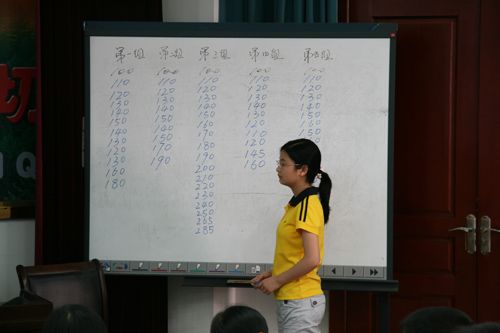 第一组
100
110
120
130
140
150
140
130
120
130
160
180
第二组
100
110
120
130
140
150
140
150
170
190
第三组
100
110
120
130
140
150
160
170
180
190
200
210
220
230
240
250
265
285
第四组
100
110
120
130
140
130
120
110
120
145
160
第五组
100
110
120
130
140
150
160
150